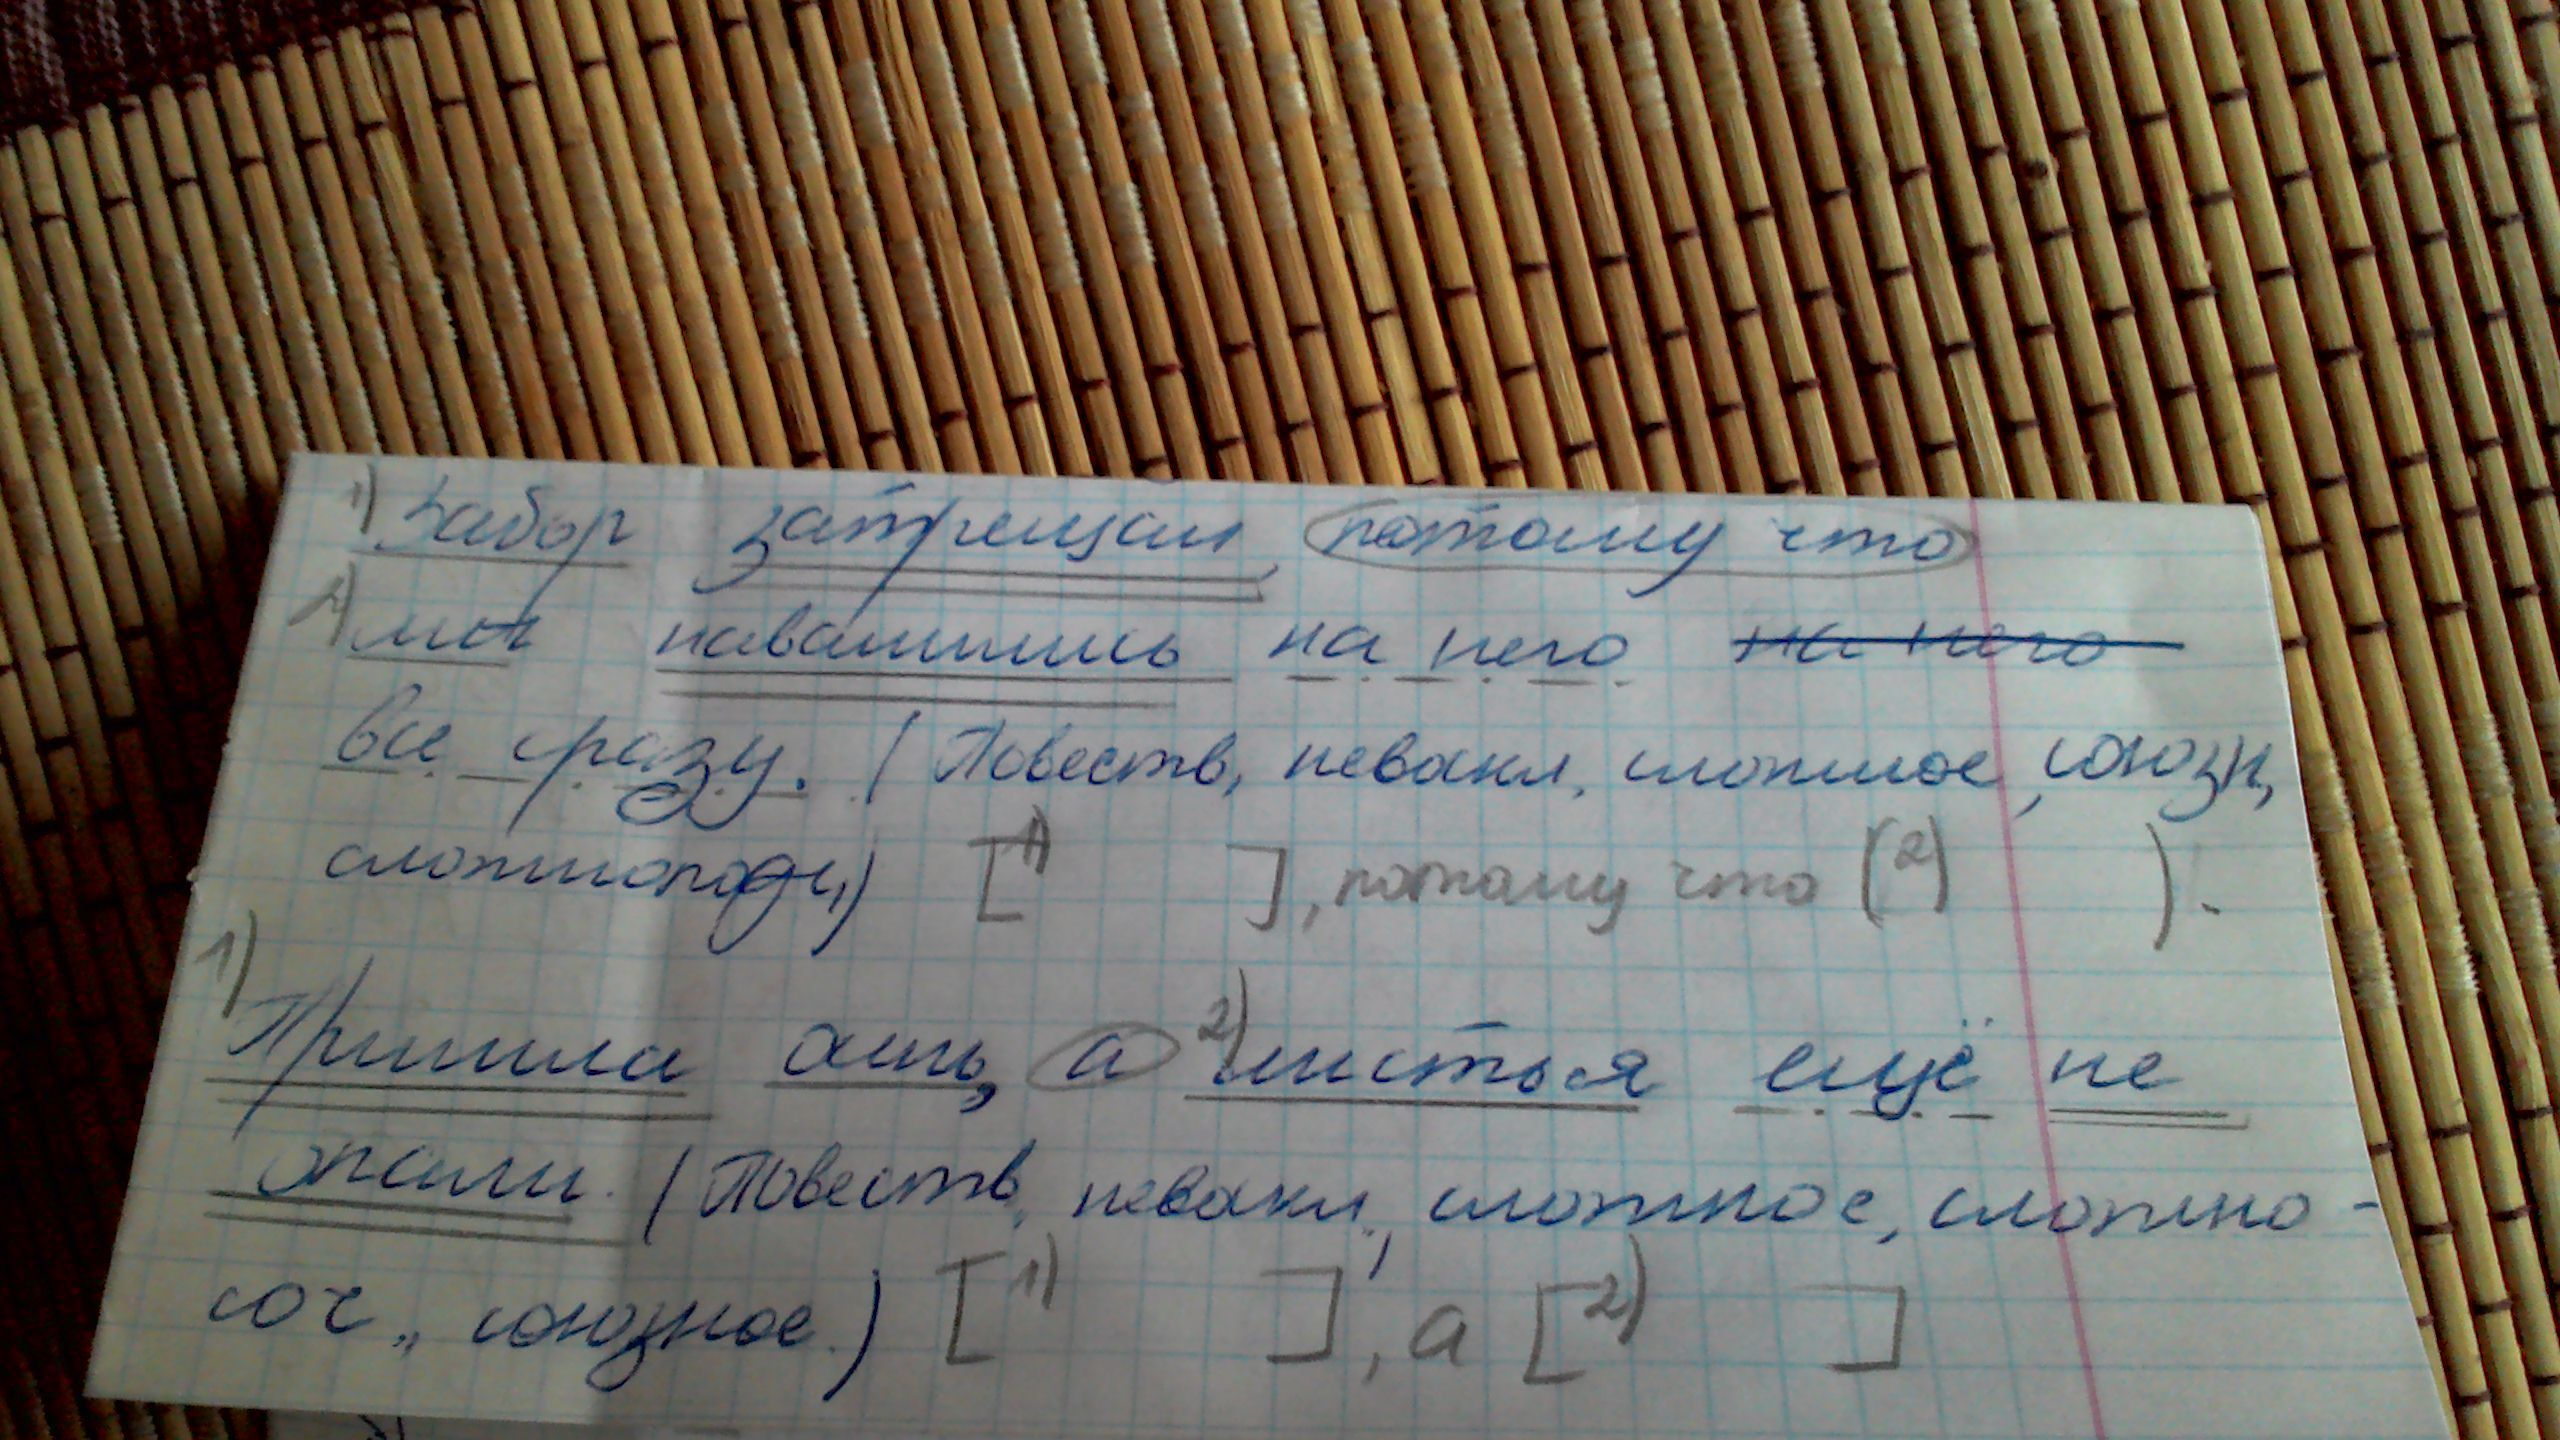 1) Забор затрещал, потому что
2) мы навалились на него на него
все сразу. (Повеств, невоскл, сложное, союзн,
сложнопод,) [1) ], потому что (2) ).
1) Пришла осень, а 2) листья ещё не
опали. (Повеств, невоскл, сложное, сложно-
соч., союзное.) [1) ], а [2) ]